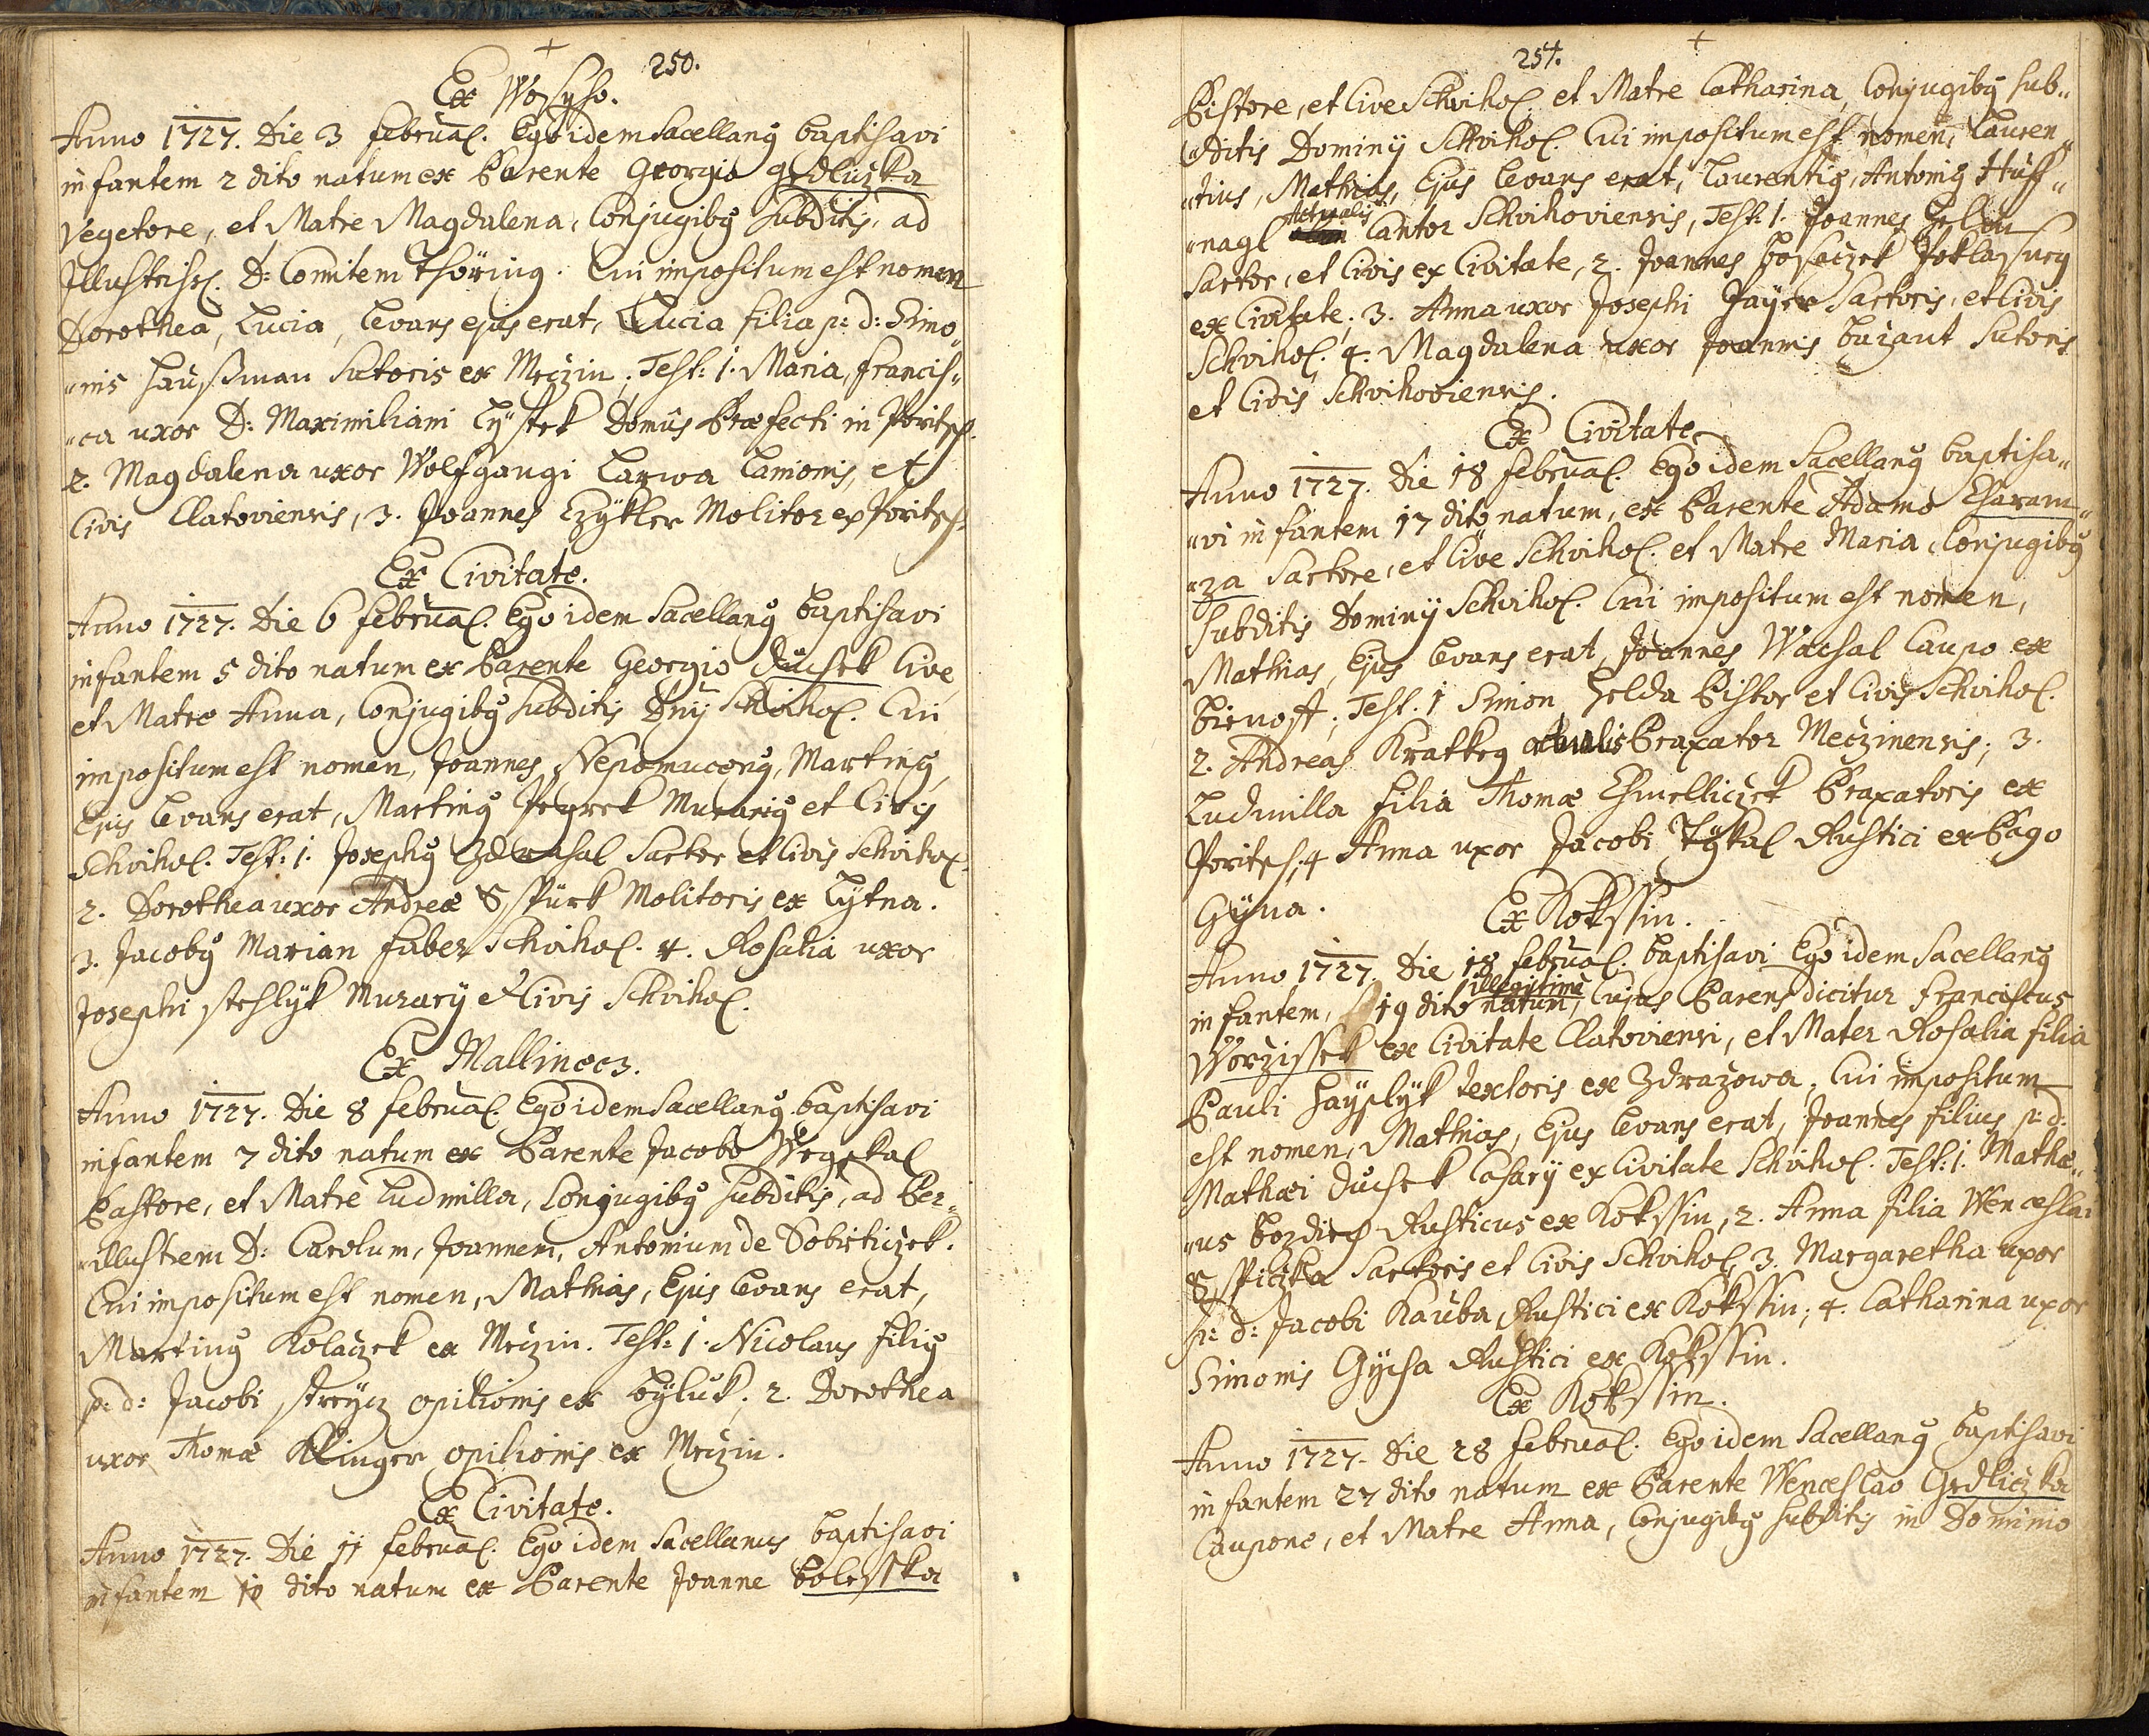 250.
Ex Wosyho.
Anno 1727. Die 3 februar. Ego idem Sacellanus baptisavi
infantem 2 dito natum ex Parente Georgio Gedliczka
Vegetore, et Matre Magdalena, Conjugibus subditis, ad
Illustriss. D: Comitem Thöring. Cui impositum est nomen
Dorothea, Lucia, Levans ejus erat, Lucia filia p: d: Simo„
„nis Haußman Sutoris ex Mečzin; Test: 1. Maria, Francis„
„ca uxor D: Maximiliani Lystek Domûs Præfecti in Poritsch.
2. Magdalena uxor Wolfgangi Lazwa Lanionis, et
Civis Clatoviensis, 3. Joannes Czykler Molitor ex Poritsch.
Ex Civitate.
Anno 1727. Die 6 februar. Ego idem Sacellanus baptisavi
infantem 5 dito natum ex Parente Georgio Duchek Cive,
et Matre Anna, Conjugibus subditis Dnÿ Schvihov. Cui
impositum est nomen, Joannes Nepomucenus, Martinus,
Ejus Levans erat, Martinus Murarius et Civis
Schvihov. Test: 1. Josephus Sartor et Civis Schvihov.
2. Dorothea uxor Andreæ Sspürk Molitoris ex Lytna.
3. Jacobus Marian Faber Schvihov. 4. Rosalia uxor
Josephi stehlyk Murarÿ et Civis Schvihov.
Ex Mallinecz.
Anno 1727. Die 8 februar. Ego idem Sacellanus baptisavi
infantem 7 dito natum ex Parente Jacobo Weyskal
Pastore, et Matre Ludmilla, Conjugibus subditis, ad Per„
„illustrem D: Carolum, Joannem, Antonium de Bobirticzek.
Cui impositum est nomen, Mathias, Ejus Levans erat,
Martinus Kolaczek ex Mečzin. Test: 1. Nicolaus filius
p: d: Jacobi streycz opilionis ex Byluk; 2. Dorothea
uxor Thomæ Klinger opilionis ex Mečzin.
Ex Civitate.
Anno 1727. Die 11 februar. Ego idem Sacellanus baptisavi
infantem 10 dito natum ex Parente Joanne Bolesska
251.
Pistore, et Cive Schvihov. et Matre Catharina, Conjugibus sub„
„ditis Dominÿ Schvihov. Cui impositum est nomen, Lauren„
„tius, Mathias, Ejus Levans erat, Laurentius, Antonius Huff„
„nagl Actualis Cantor Schvihoviensis, Test: 1. Joannes
Sartor, et Civis ex Civitate, 2. Joannes Bosaczek
ex Civitate; 3. Anna uxor Josephi Jayer Sartoris, et Civis
Schvihov; 4. Magdalena uxor Joannis Buzant Sutoris
et Civis Schvihoviensis.
Ex Civitate
Anno 1727. Die 18 februar. Ego idem Sacellanus baptisa„
„vi infantem 17 dito natum, ex Parente Adamo Charam„
„za Sartore, et Cive Schvihov. et Matre Maria, Conjugibus
subditis Dominÿ Schvihov. Cui impositum est nomen,
Mathias, Ejus Levans erat, Joannes Wachal Caupo ex
Bienoff; Test. 1 Simon Helda Pistor et Civis Schvihov.
2. Andreas Kratkey actualis Braxator Mečzinensis; 3.
Ludmilla filia Thomæ Chmelliczek Braxatoris ex
Poritsch; 4 Anna uxor Jacobi Tykal Rustici ex Pago
Gÿna.
Ex Kokssin.
Anno 1727. Die 18 februar. baptisavi Ego idem Sacellanus
infantem, 19 dito illegitimè natum, Cujus Parens dicitur Franciscus
Worzissek ex Civitate Clatoviensi, et Mater Rosalia filia
Pauli Hayplyk textoris ex Zdrazowa; Cui impositum
est nomen, Mathias, Ejus Levans erat, Joannes filius p: d:
Mathæi Duchek Casarÿ ex Civitate Schvihov. Test: 1. Mathæ„
„us Bozdiech Rusticus ex Kokssin, 2. Anna filia Wenceslai
Sspiczka Sartoris et Civis Schvihov, 3. Margaretha uxor
p: d: Jacobi Kauba Rustici ex Kokssin; 4. Catharina uxor
Simonis Gÿcha Rustici ex Kokssin.
Ex Kokssin.
Anno 1727. Die 28 februar. Ego idem Sacellanus baptisavi
infantem 27 dito natum ex Parente Wenceslao Gedliczka
Caupone, et Matre Anna, Conjugibus subditis in Dominio